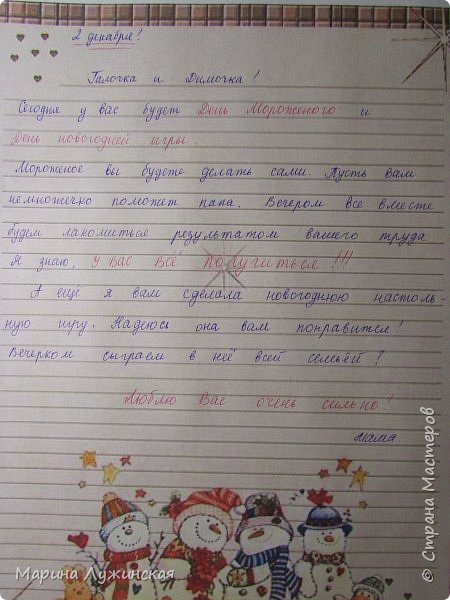 2 декабря!
Галочка и Димочка!
Сегодня у вас будет День Мороженого и
День новогодней игры.
Мороженое вы будете делать сами. Пусть вам
немножечко поможет папа. Вечером все вместе
будем лакомиться результатом вашего труда
Я знаю, у Вас Всё получиться!!!
А ещё я вам сделала новогоднюю настоль-
ную игру. Надеюсь она вам понравится!
Вечерком сыграем в неё всей семьёй?
Люблю Вас очень сильно!
мама
Марина Лужинская
© Страна Мастеров